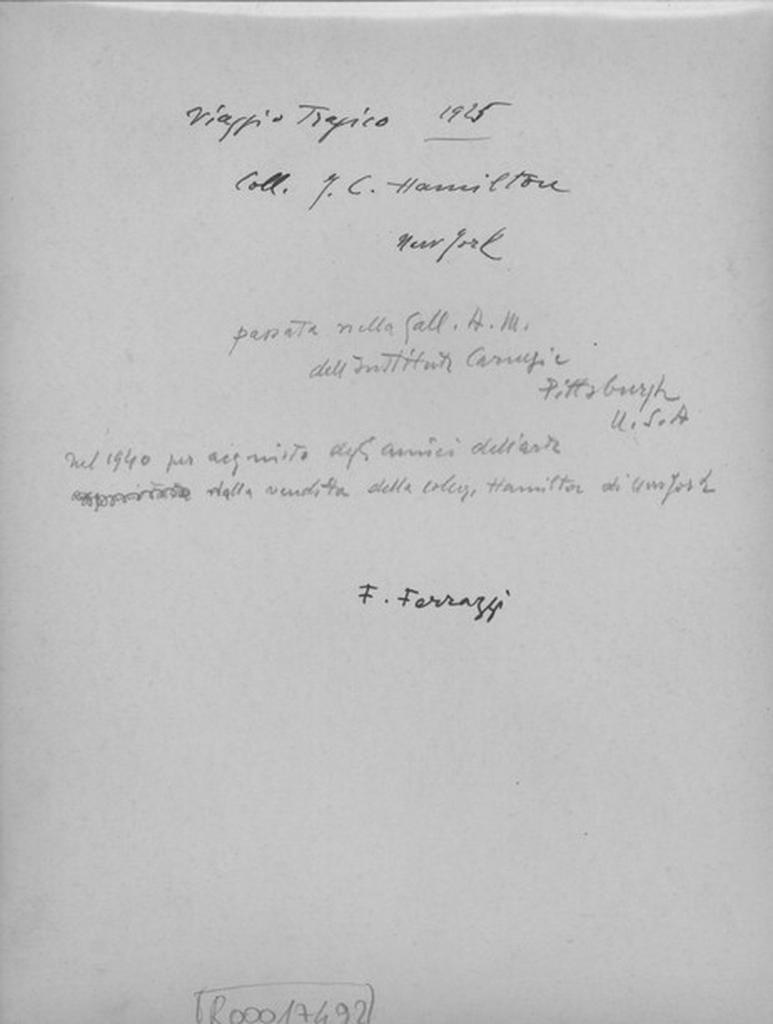 Viaggio Tragico 1925
Coll. J. C. Hamilton
New York
passata nella Gall. A. M.
dell'Istituto Carnegie
Pittsburgh
U.S.A
nel 1940 per acquisto degli amici dell'arte
dalla vendita della collez. Hamilton di New York
F. Ferrazzi
R00017492